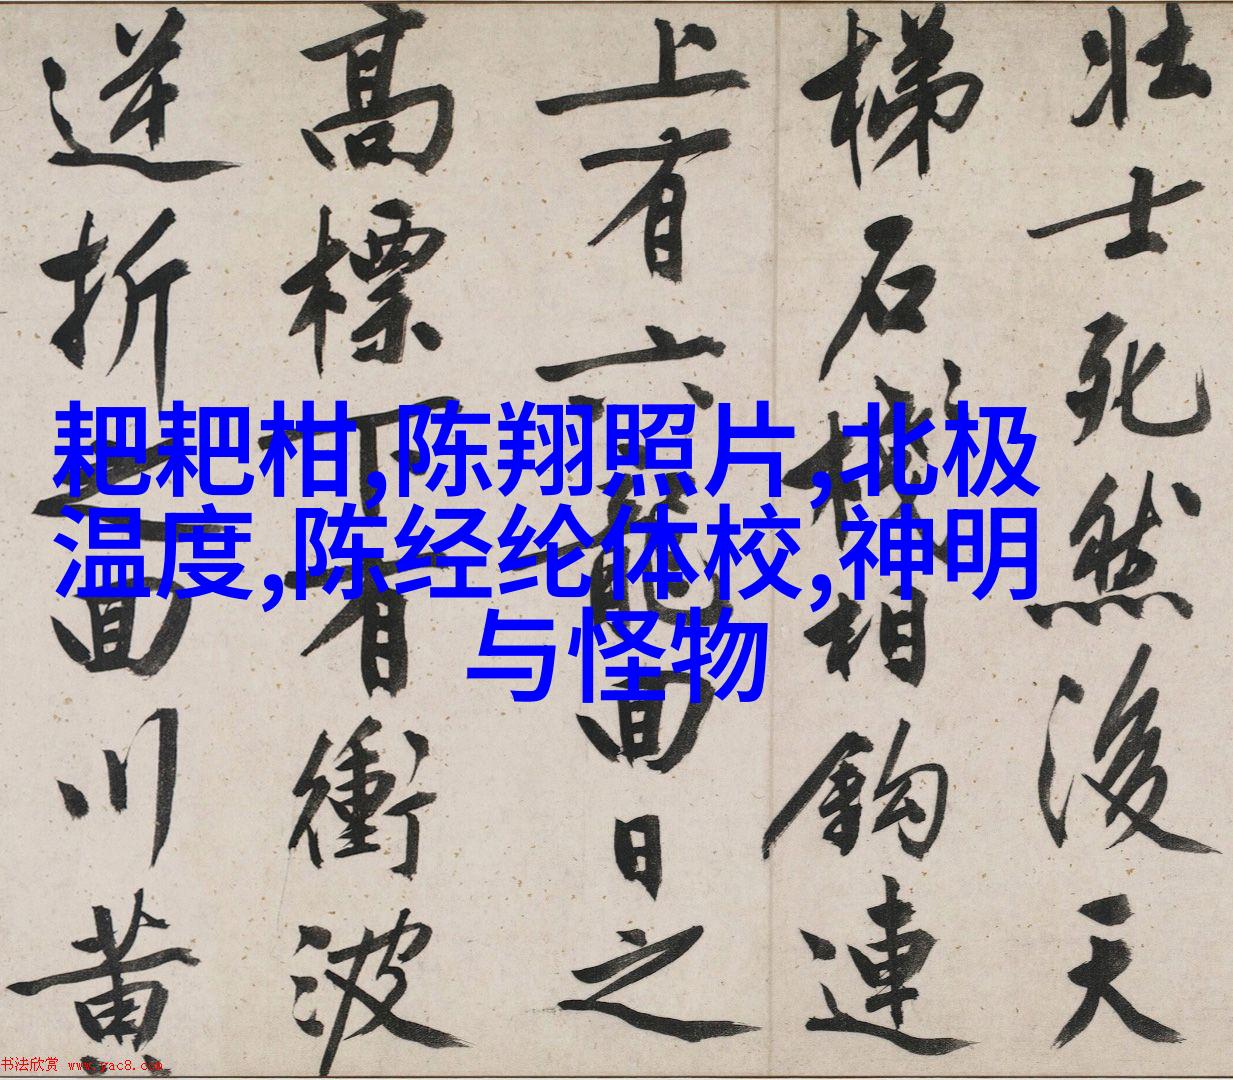 壮士死然後天
梯石棧相鉤連
上有六龍回日之
高標下有衝波
逆折之回川黃
耙耙柑,陈翔照片,北极
温度,陈经纶体校,神明
与怪物
书法欣赏 www.yac8.com